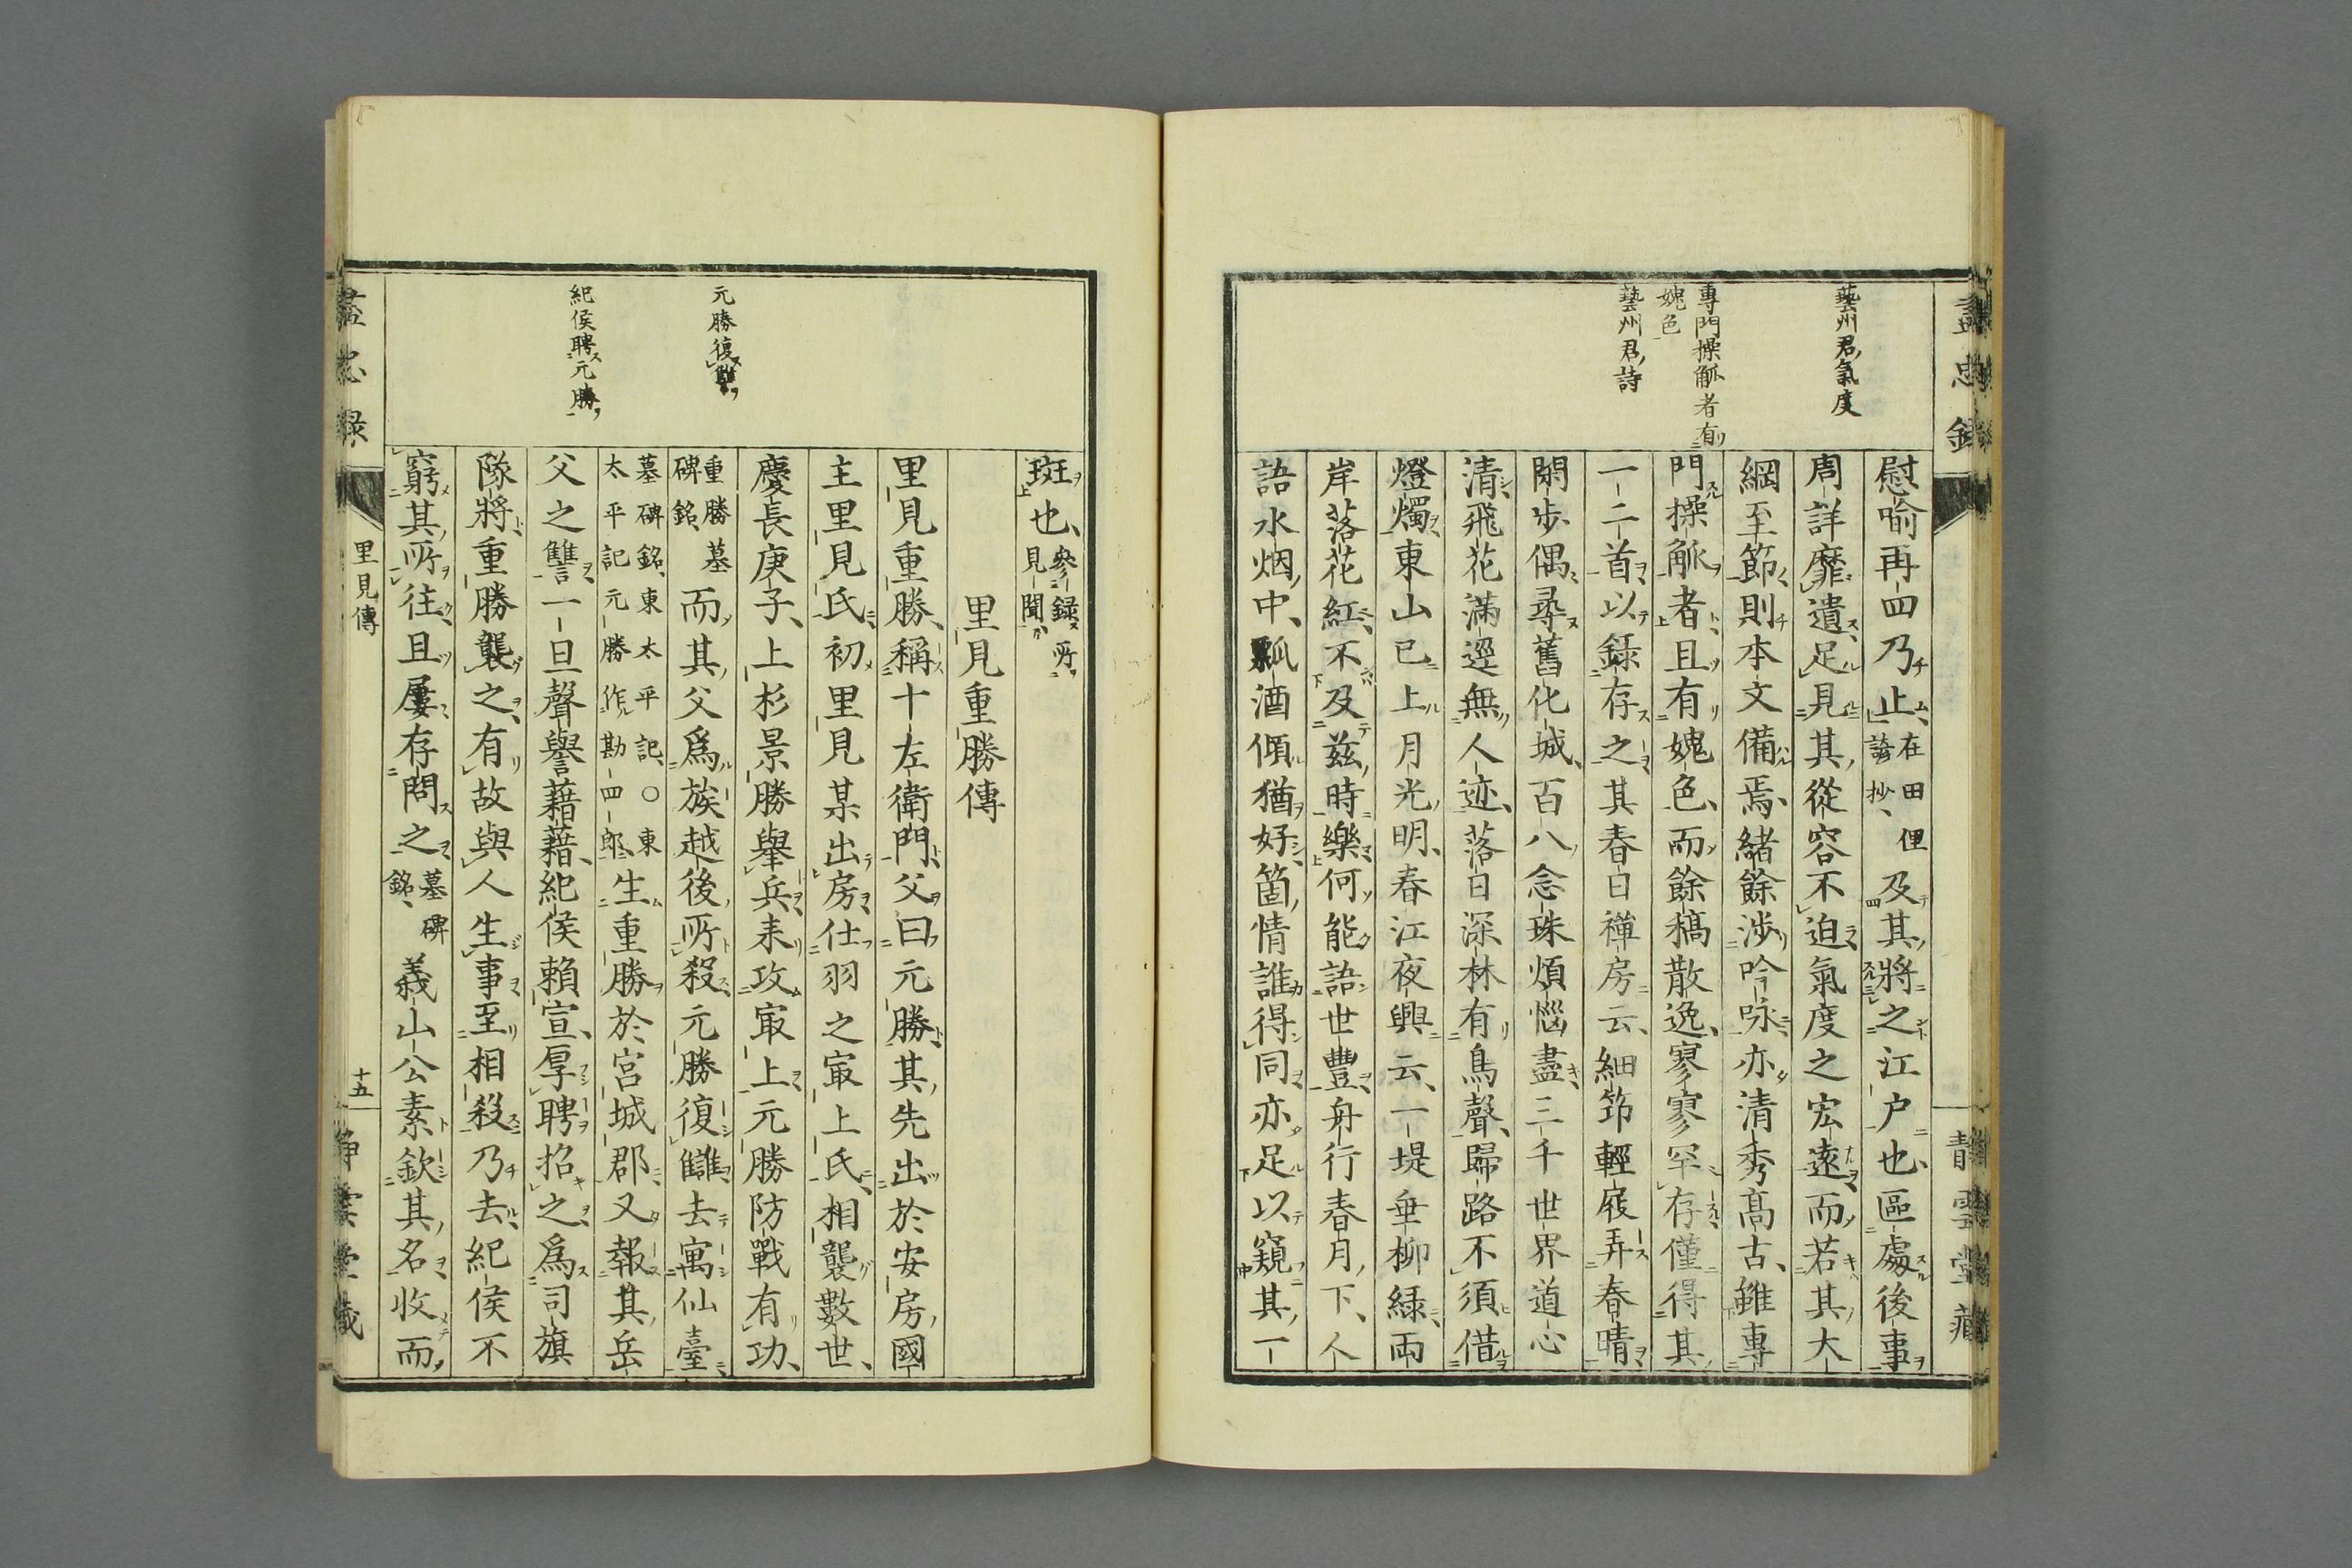 盡忠録
青雲堂藏
藝州君氣度
專門操觚者有
媿色
藝州君詩
慰喻再四乃止在田俚諺抄及其將之江戸也區處後事
周詳靡遺足見其從容不迫氣度之宏遠而若其大
綱至節則本文備焉緒餘涉吟咏亦清秀高古雖專
門操觚者且有媿色而餘稿散逸寥寥罕存僅得其
一二首以錄存之其春日禪房云細笻輕屐弄春晴
閑步偶尋舊化城百八念珠煩惱盡三千世界道心
清飛花滿逕無人迹落日深林有鳥聲歸路不須借
燈燭東山已上月光明春江夜興云一堤垂柳緑兩
岸落花紅不及茲時樂何能語世豐舟行春月下人
語水烟中瓢酒傾猶好箇情誰得同亦足以窺其一
元勝復讎
紀侯聘元勝
斑也參録所見聞
里見重勝傳
里見重勝稱十左衛門父曰元勝其先出於安房國
主里見氏初里見某出房仕羽之㝡上氏相襲數世
慶長庚子上杉景勝舉兵来攻㝡上元勝防戰有功
重勝墓碑銘而其父爲族越後所殺元勝復讎去寓仙臺
墓碑銘東太平記〇東太平記元勝作勘四郎生重勝於宮城郡又報其岳
父之讐一旦聲譽藉藉紀侯賴宣厚聘招之爲司旗
隊將重勝襲之有故與人生事至相殺乃去紀侯不
窮其所往且屢存問之墓碑銘義山公素欽其名收而
盡忠録
里見傳
十五
青雲堂藏